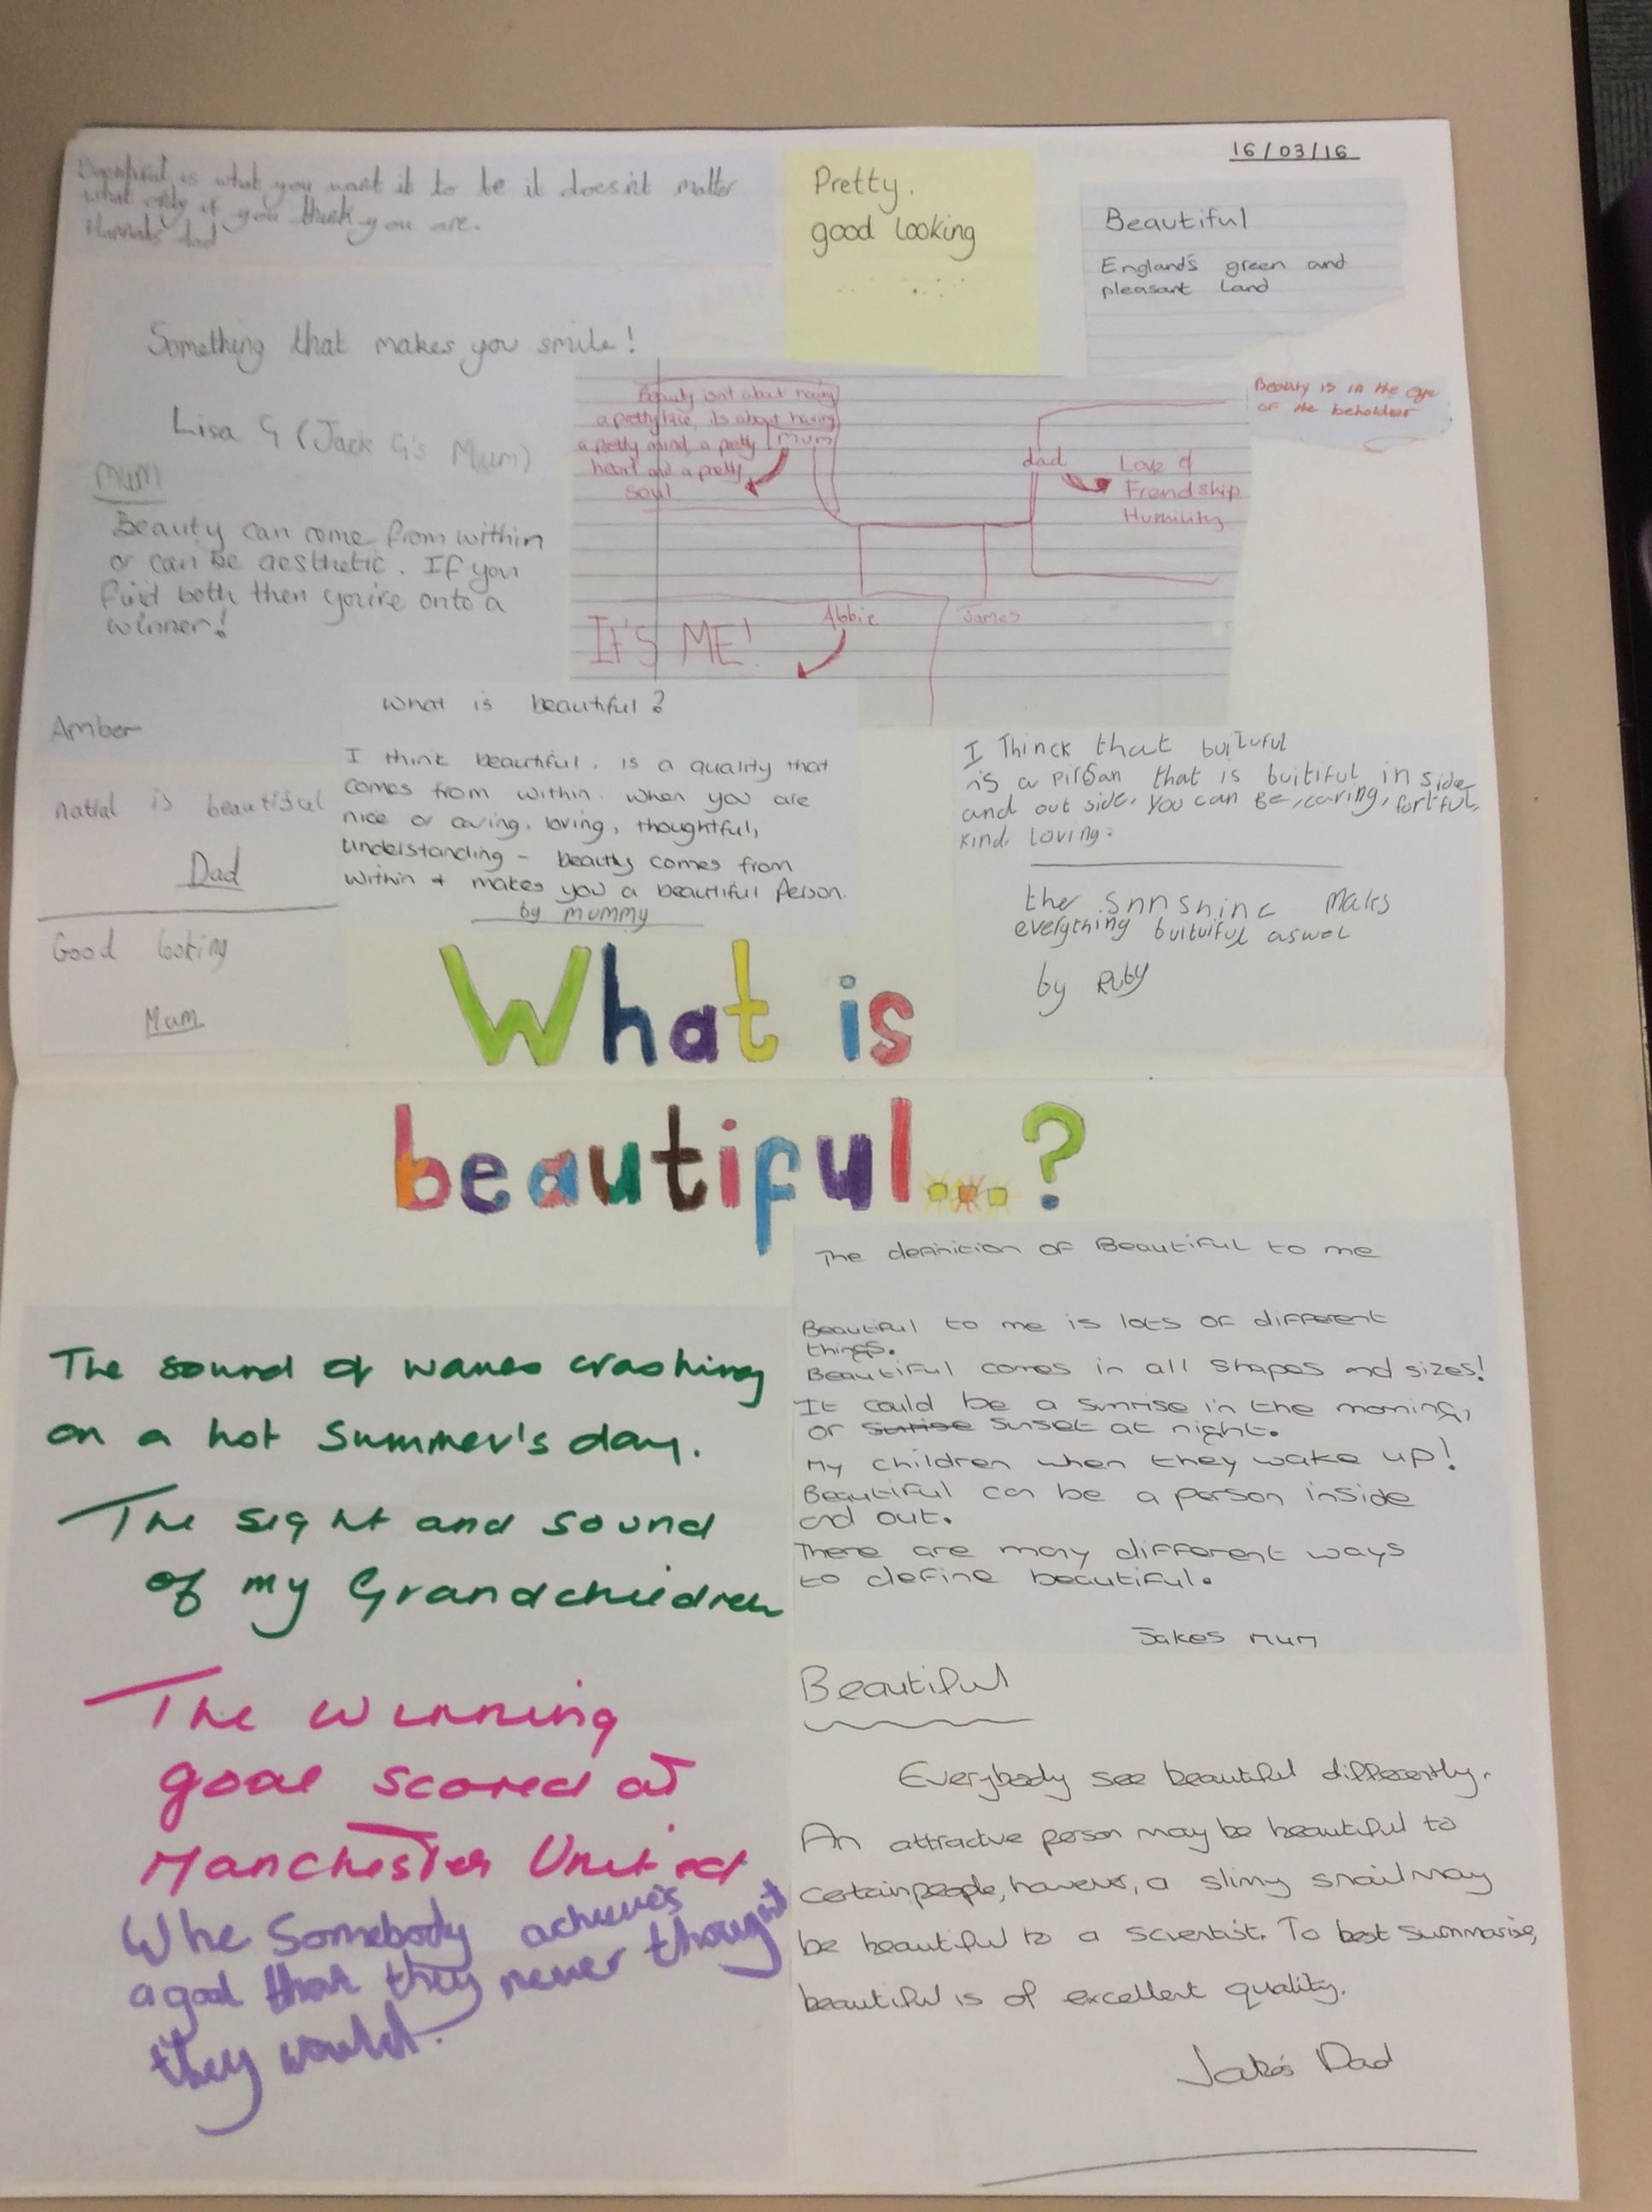 16/03/16
Beautiful is what you want it to be it doesn't matter
what only if you think you are.
Hannahs dad
Pretty.
good looking
Beautiful
England's green and
pleasant land
Something that makes you smile!
Lisa G (Jack G's Mum)
Mum
Beauty can come from within
or can be aesthetic. If you
find both then you're onto a
winner!
Beauty isn't about having
a pretty face, its about having
a pretty mind, a pretty
heart and a pretty
soul
mum
dad
Love &
Frendship
Humility
Beauty is in the eye
of the beholder
IT'S ME!
Abbie
James
Amber
natral is beautiful
Dad
Good looking
Mum
What is beautiful?
I think beautiful, is a quality that
comes from within. When you are
nice or caring, loving, thoughtful,
understanding - beauty comes from
within + makes you a beautiful person.
by mummy
I Thinck that
is a that is buitiful in side
and out side, you can Be, caring,
kind loving.
the makes
everything aswel
by Ruby
What is
beautiful...?
The sound of waves crashing
on a hot Summer's day.
The sight and sound
of my Grandchildren
The winning
goal scored at
Manchester United
Whe Somebody achieves
a goal that they never thought
they would.
The definicion of Beautiful to me
Beautiful to me is lots of different
things.
Beautiful comes in all shapes and sizes!
It could be a sunrise in the morning,
or sunrise sunset at night.
My children when they wake up!
Beautiful can be a person inside
and out.
There are many different ways
to define beautiful.
Jakes Mum
Beautiful
Everybody see beautiful differently.
An attractive person may be beautiful to
certain people, however, a slimy snail may
be beautiful to a scientist. To best summarise,
beautiful is of excellent quality.
Jake's Dad